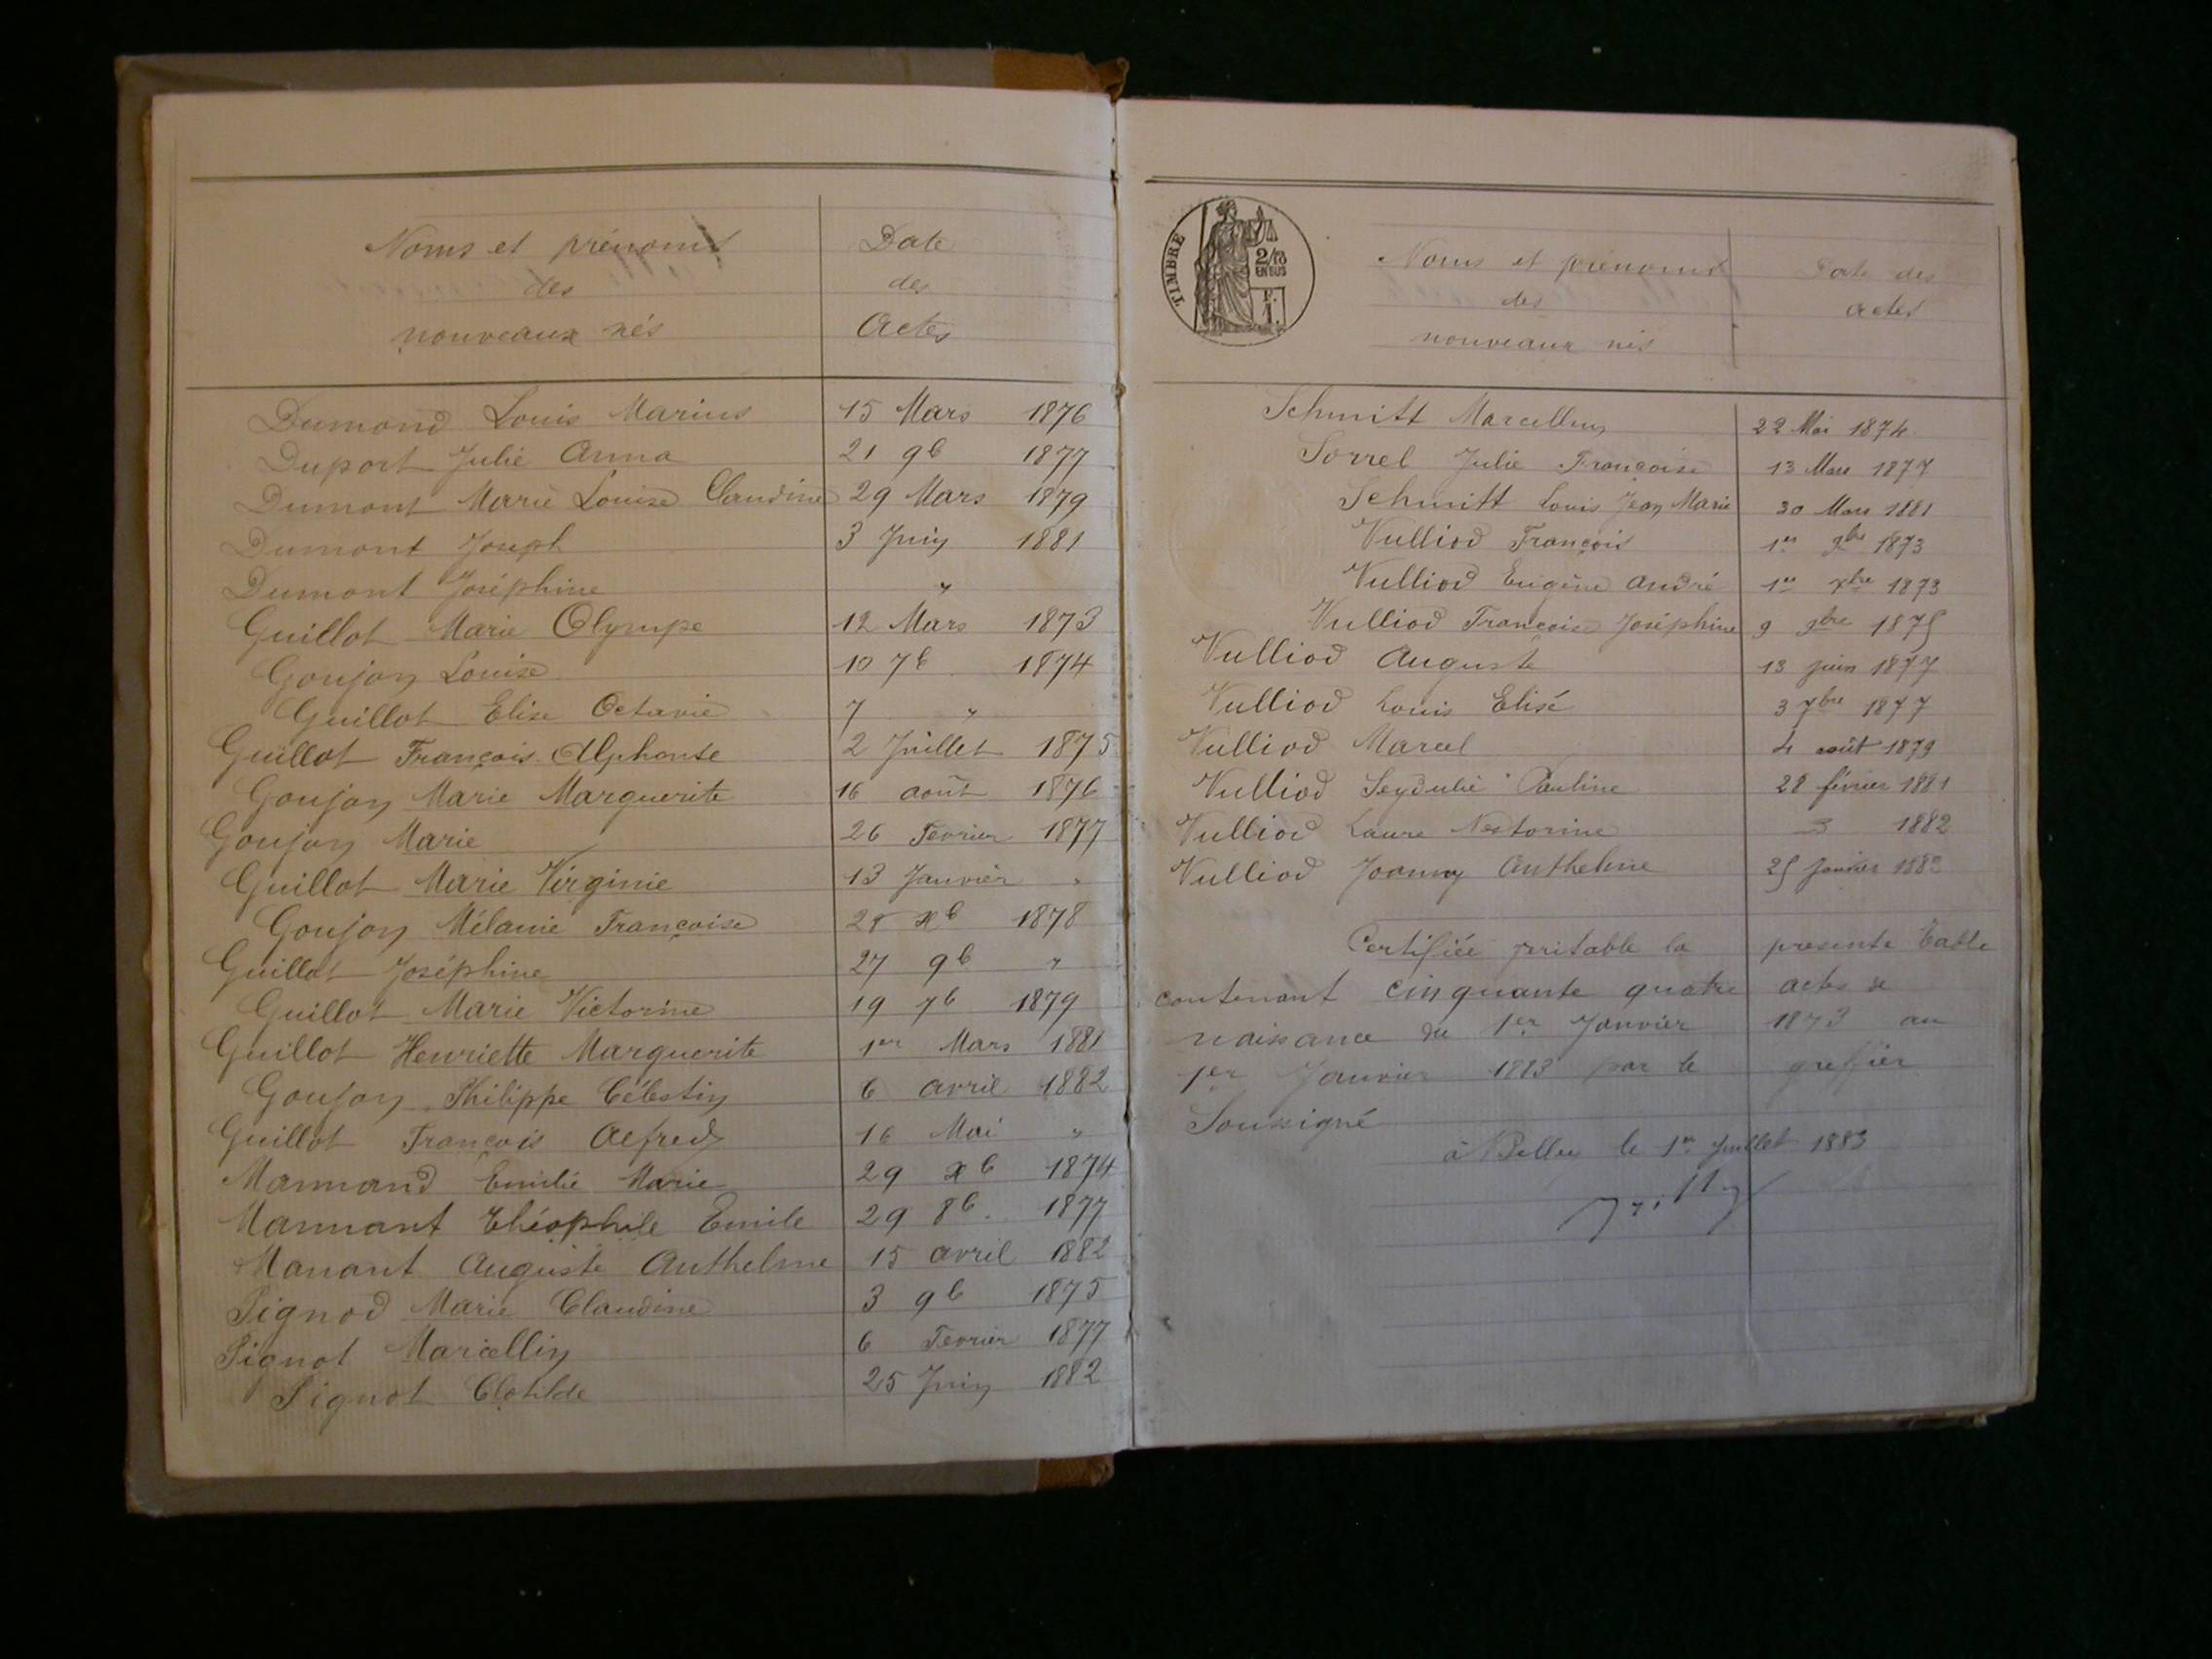 Noms et prénoms
des
nouveaux nés
Date
des
Actes
Dumond Louis Marius 15 Mars 1876
Duport Julie Anna 21 9b 1877
Dumont Marie Louise Claudine 29 Mars 1879
Dumont Joseph 3 Juin 1881
Dumont Joséphine "
Guillot Marie Olympe 12 Mars 1873
Goujon Louise 10 7b 1874
Guillot Elise Octavie 7 "
Guillot François Alphonse 2 Juillet 1875
Goujon Marie Marguerite 16 août 1876
Goujon Marie 26 Fevrier 1877
Guillot Marie Virginie 13 Janvier "
Goujon Mélanie Françoise xb 1878
Guillot Joséphine 27 9b "
Guillot Marie Victorine 19 7b 1879
Guillot Henriette Marguerite 1er Mars 1881
Goujon Philippe Célestin 6 avril 1882
Guillot François Alfred 16 Mai "
Mannand Emilie Marie 29 xb 1874
Mannant Théophile Emile 29 8b 1877
Manant Auguste Anthelme 15 avril 1882
Pignod Marie Claudine 3 9b 1875
Pignot Marcellin 6 Fevrier 1877
Pignot Clotilde 25 Juin 1882
TIMBRE
2/10
EN SUS
F.
1.
Noms et prénoms
des
nouveaux nés
Date des
actes
Schmitt Marcellin 22 Mai 1874
Sorrel Julie Françoise 13 Mars 1877
Schmitt Louis Jean Marie 30 Mars 1881
Vulliod François 1er 9bre 1873
Vulliod Eugène André 1er xbre 1873
Vulliod Françoise Joséphine 9 9bre 1875
Vulliod Auguste 13 juin 1877
Vulliod Louis Elisé 3 7bre 1877
Vulliod Marcel 4 août 1879
Vulliod Pauline 28 février 1881
Vulliod Laure Nestorine 1882
Vulliod Joanny Anthelme 25 janvier
Certifiée veritable la presente table
contenant cinquante quatre actes de
naissance du 1er Janvier 1873 au
1er Janvier 1883 par le greffier
Soussigné
à Belley le 1er Juillet 1883